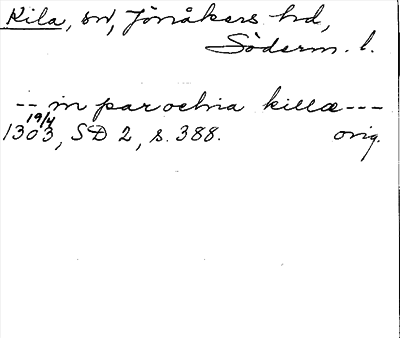 Kila, sn, Jönåkers hd,
Söderm. l.
-- in parochia killæ ---
19/4
1303, SD 2, s. 388. orig.